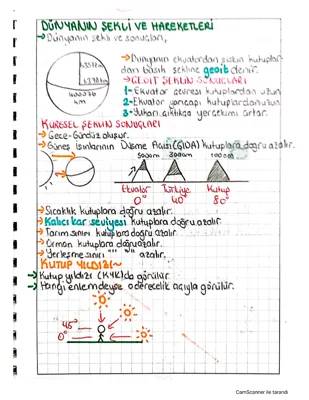 DÜNYANIN ŞEKLİ VE HAREKETLERİ
→Dünyanın şekli ve sonuçları,
→Dünyanın ekvatordan şişkin kutuplar-
dan basık şekline geoit denir.
→GEOİT ŞEKLİN SONUÇLARI
1-Ekvator çevresi kutuplardan uzun
2-Ekvator yarıçapı kutuplardan uzun
3-Yukarı çıktıkça yerçekimi artar.
40076
km
KÜRESEL ŞEKLİN SONUÇLARI
→Gece-Gündüz oluşur.
→Güneş ışınlarının Düşme Açısı(GIDA) kutuplara doğru azalır.
5000m 3000m
Ekvator Türkiye Kutup
0° 40°
→Sıcaklık kutuplara doğru azalır.
→Kalıcı kar seviyesi kutuplara doğru azalır
→Tarım sınırı kutuplara doğru azalır.
→Orman kutuplara doğru azalır.
→Yerleşme sınırı "" "" azalır.
KUTUP YILDIZI~
→Kutup yıldızı (KYK)da görülür.
→Hangi enlemdeyse o derecelik açıyla görülür.
45°
0°
CamScanner ile tarandı